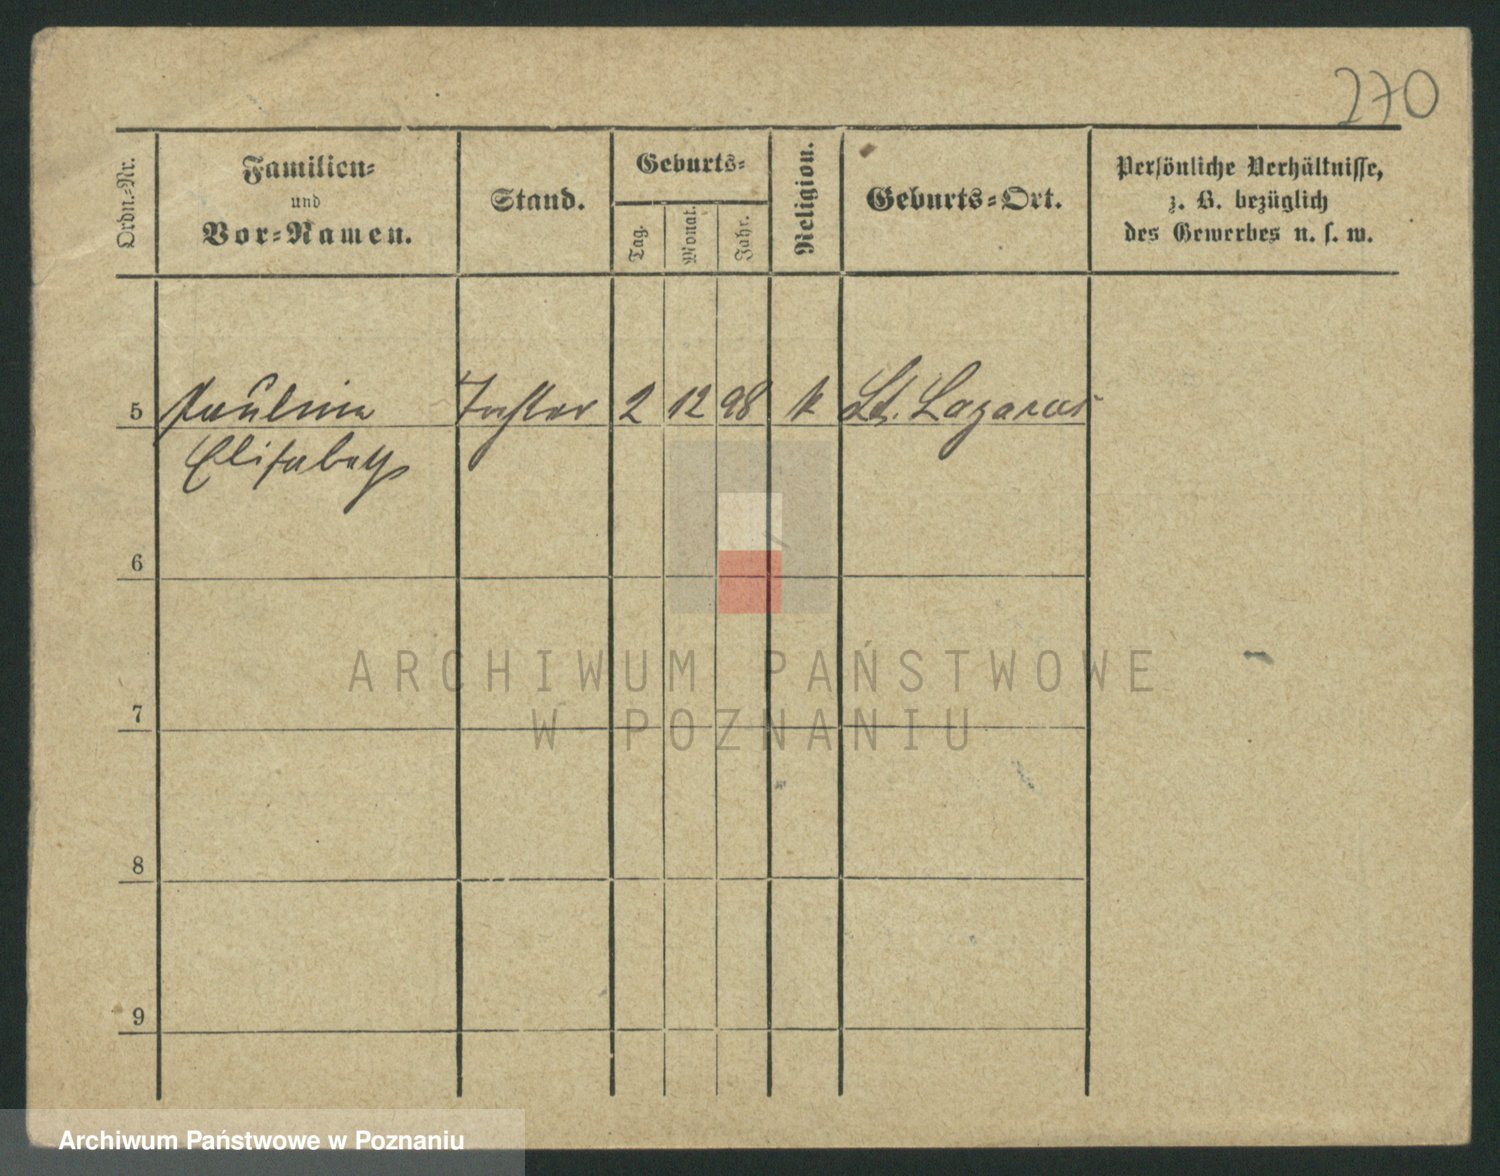 270
Ordn.-Nr.
Familien-
und
Vor-Namen.
Stand.
Geburts-
Tag.
Monat.
Jahr.
Religion.
Geburts-Ort.
Persönliche Verhältnisse,
z. B. bezüglich
des Gewerbes u. s. w.
5 Paulina Tochter 2 12 98 k St. Lazarus
Elisabeth
6
7
8
9
ARCHIWUM PAŃSTWOWE
W POZNANIU
Archiwum Państwowe w Poznaniu